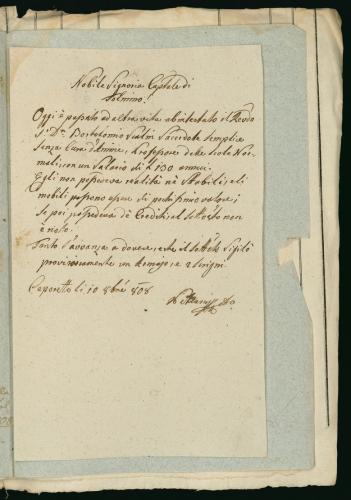 Nobile Signoria Capitale di
Tolmino!
Oggi è passato ad altra vita abintestato il Revdo
Sr Dn Bortolomio Scalin Sacerdote semplice
senza Cura d'anime, Professore delle Scole Nor-
mali, con un Salario di f 130 annui.
Egli non possedeva realità nè Stabili, e li
mobili possono essere di pochissimo valore, i
Se poi possedeva de Crediti, al sottosto non
è noto.
Tanto s'avanza a dovere, e che il sottosto sigilò
provisoriamente un Armajo, e 2 scrigni.
Caporetto li 10 8bre 808